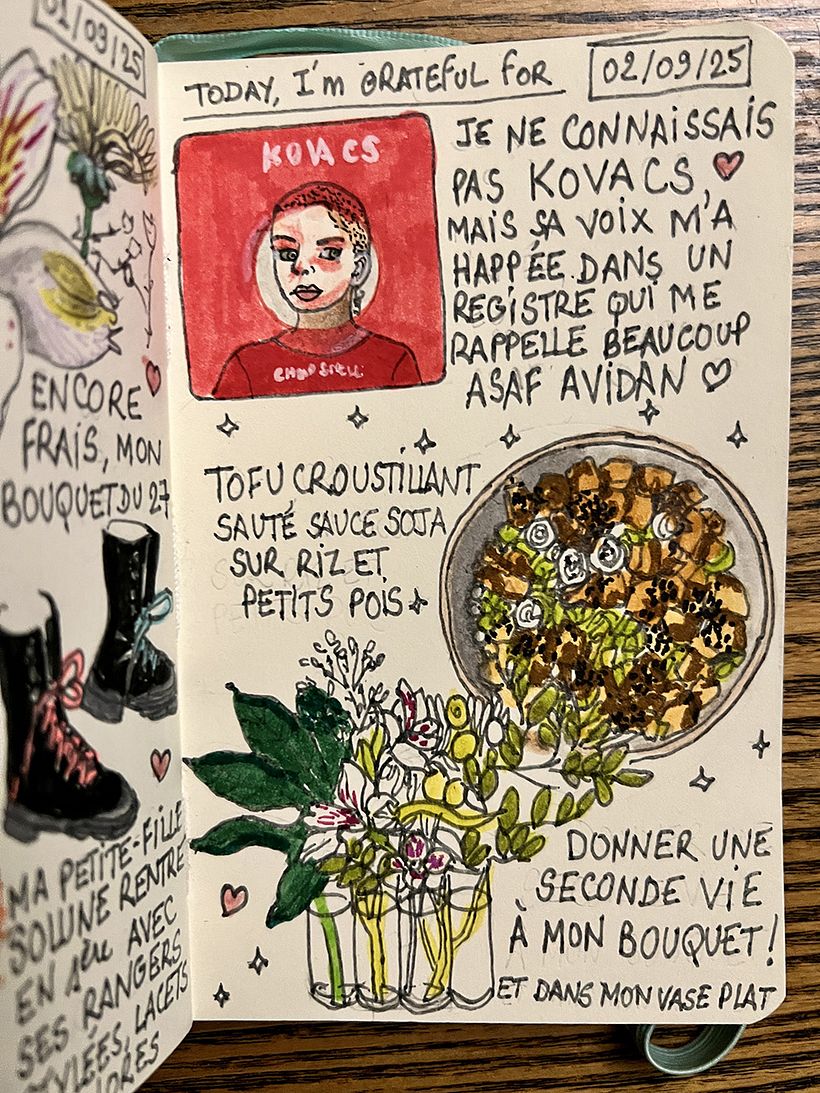 01/09/25
ENCORE
FRAIS, MON
BOUQUET DU 27
MA PETITE-FILLE
RENTRE
EN AVEC
SES RANGERS
LACETS
TODAY, I'M GRATEFUL FOR
02/09/25
KOVACS
JE NE CONNAISSAIS
PAS KOVACS,
MAIS SA VOIX M'A
HAPPÉE DANS UN
REGISTRE QUI ME
RAPPELLE BEAUCOUP
ASAF AVIDAN
TOFU CROUSTILLANT
SAUTÉ SAUCE SOJA
SUR RIZ ET
PETITS POIS
DONNER UNE
SECONDE VIE
À MON BOUQUET!
ET DANS MON VASE PLAT